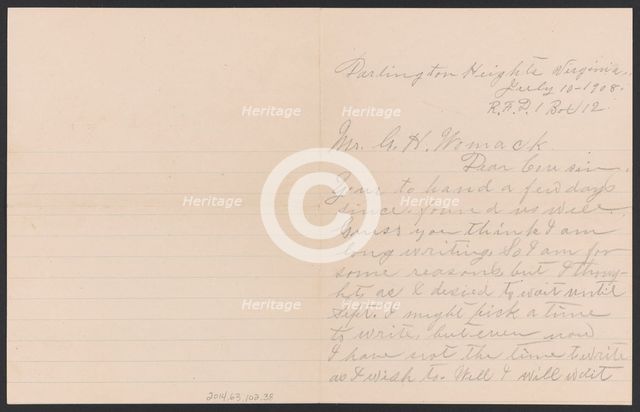 Darlington Heights Virginia.
July 10-1908.
R.F.D. 1 Box 12
Mr. G. H. Womack.
Dear Cousin,
Yours to hand a few days
since, found us well.
Guess you think I am
long writing, So I am for
some reasons but I thoug-
ht as I desired to wait until
Sept. I might pick a time
to write, but even now
I have not the time to write
as I wish to. Well I will wait
2014.63.102.38
Heritage
Heritage
Heritage
Heritage
Heritage
Heritage
©